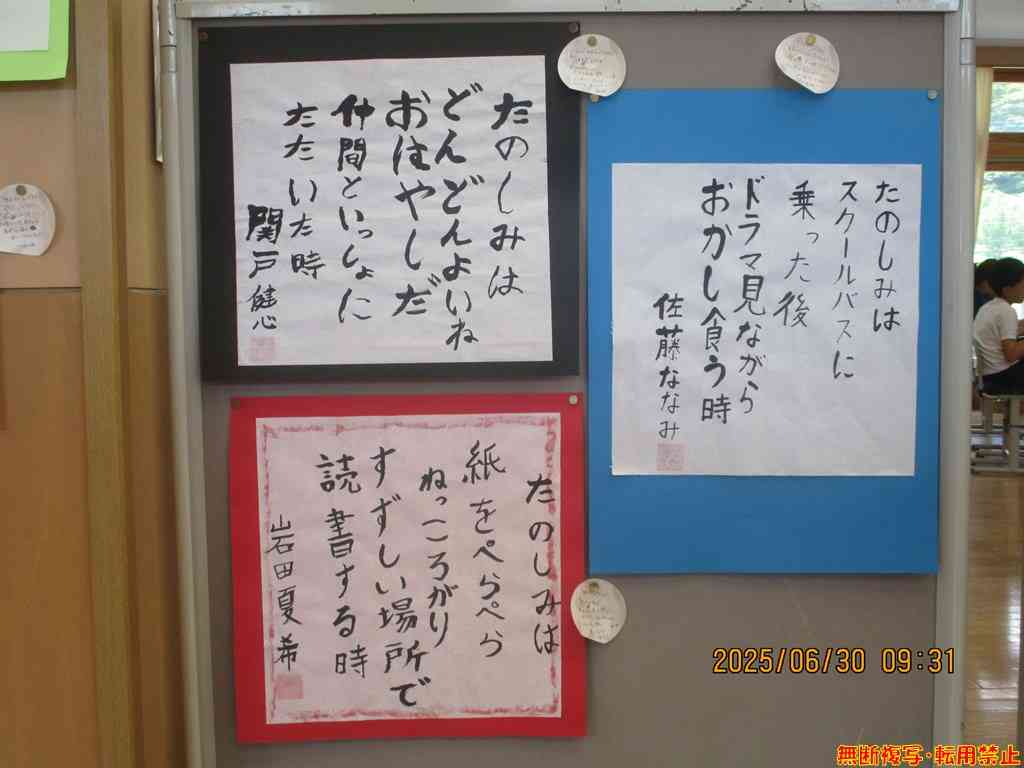 たのしみは
どんどんよいね
おはやしだ
仲間といっしょに
たたいた時
関戸健心
たのしみは
スクールバスに
乗った後
ドラマ見ながら
おかし食う時
佐藤ななみ
たのしみは
紙をぺらぺら
ねっころがり
すずしい場所で
読書する時
岩田夏希
2025/06/30 09:31
無断複写・転用禁止